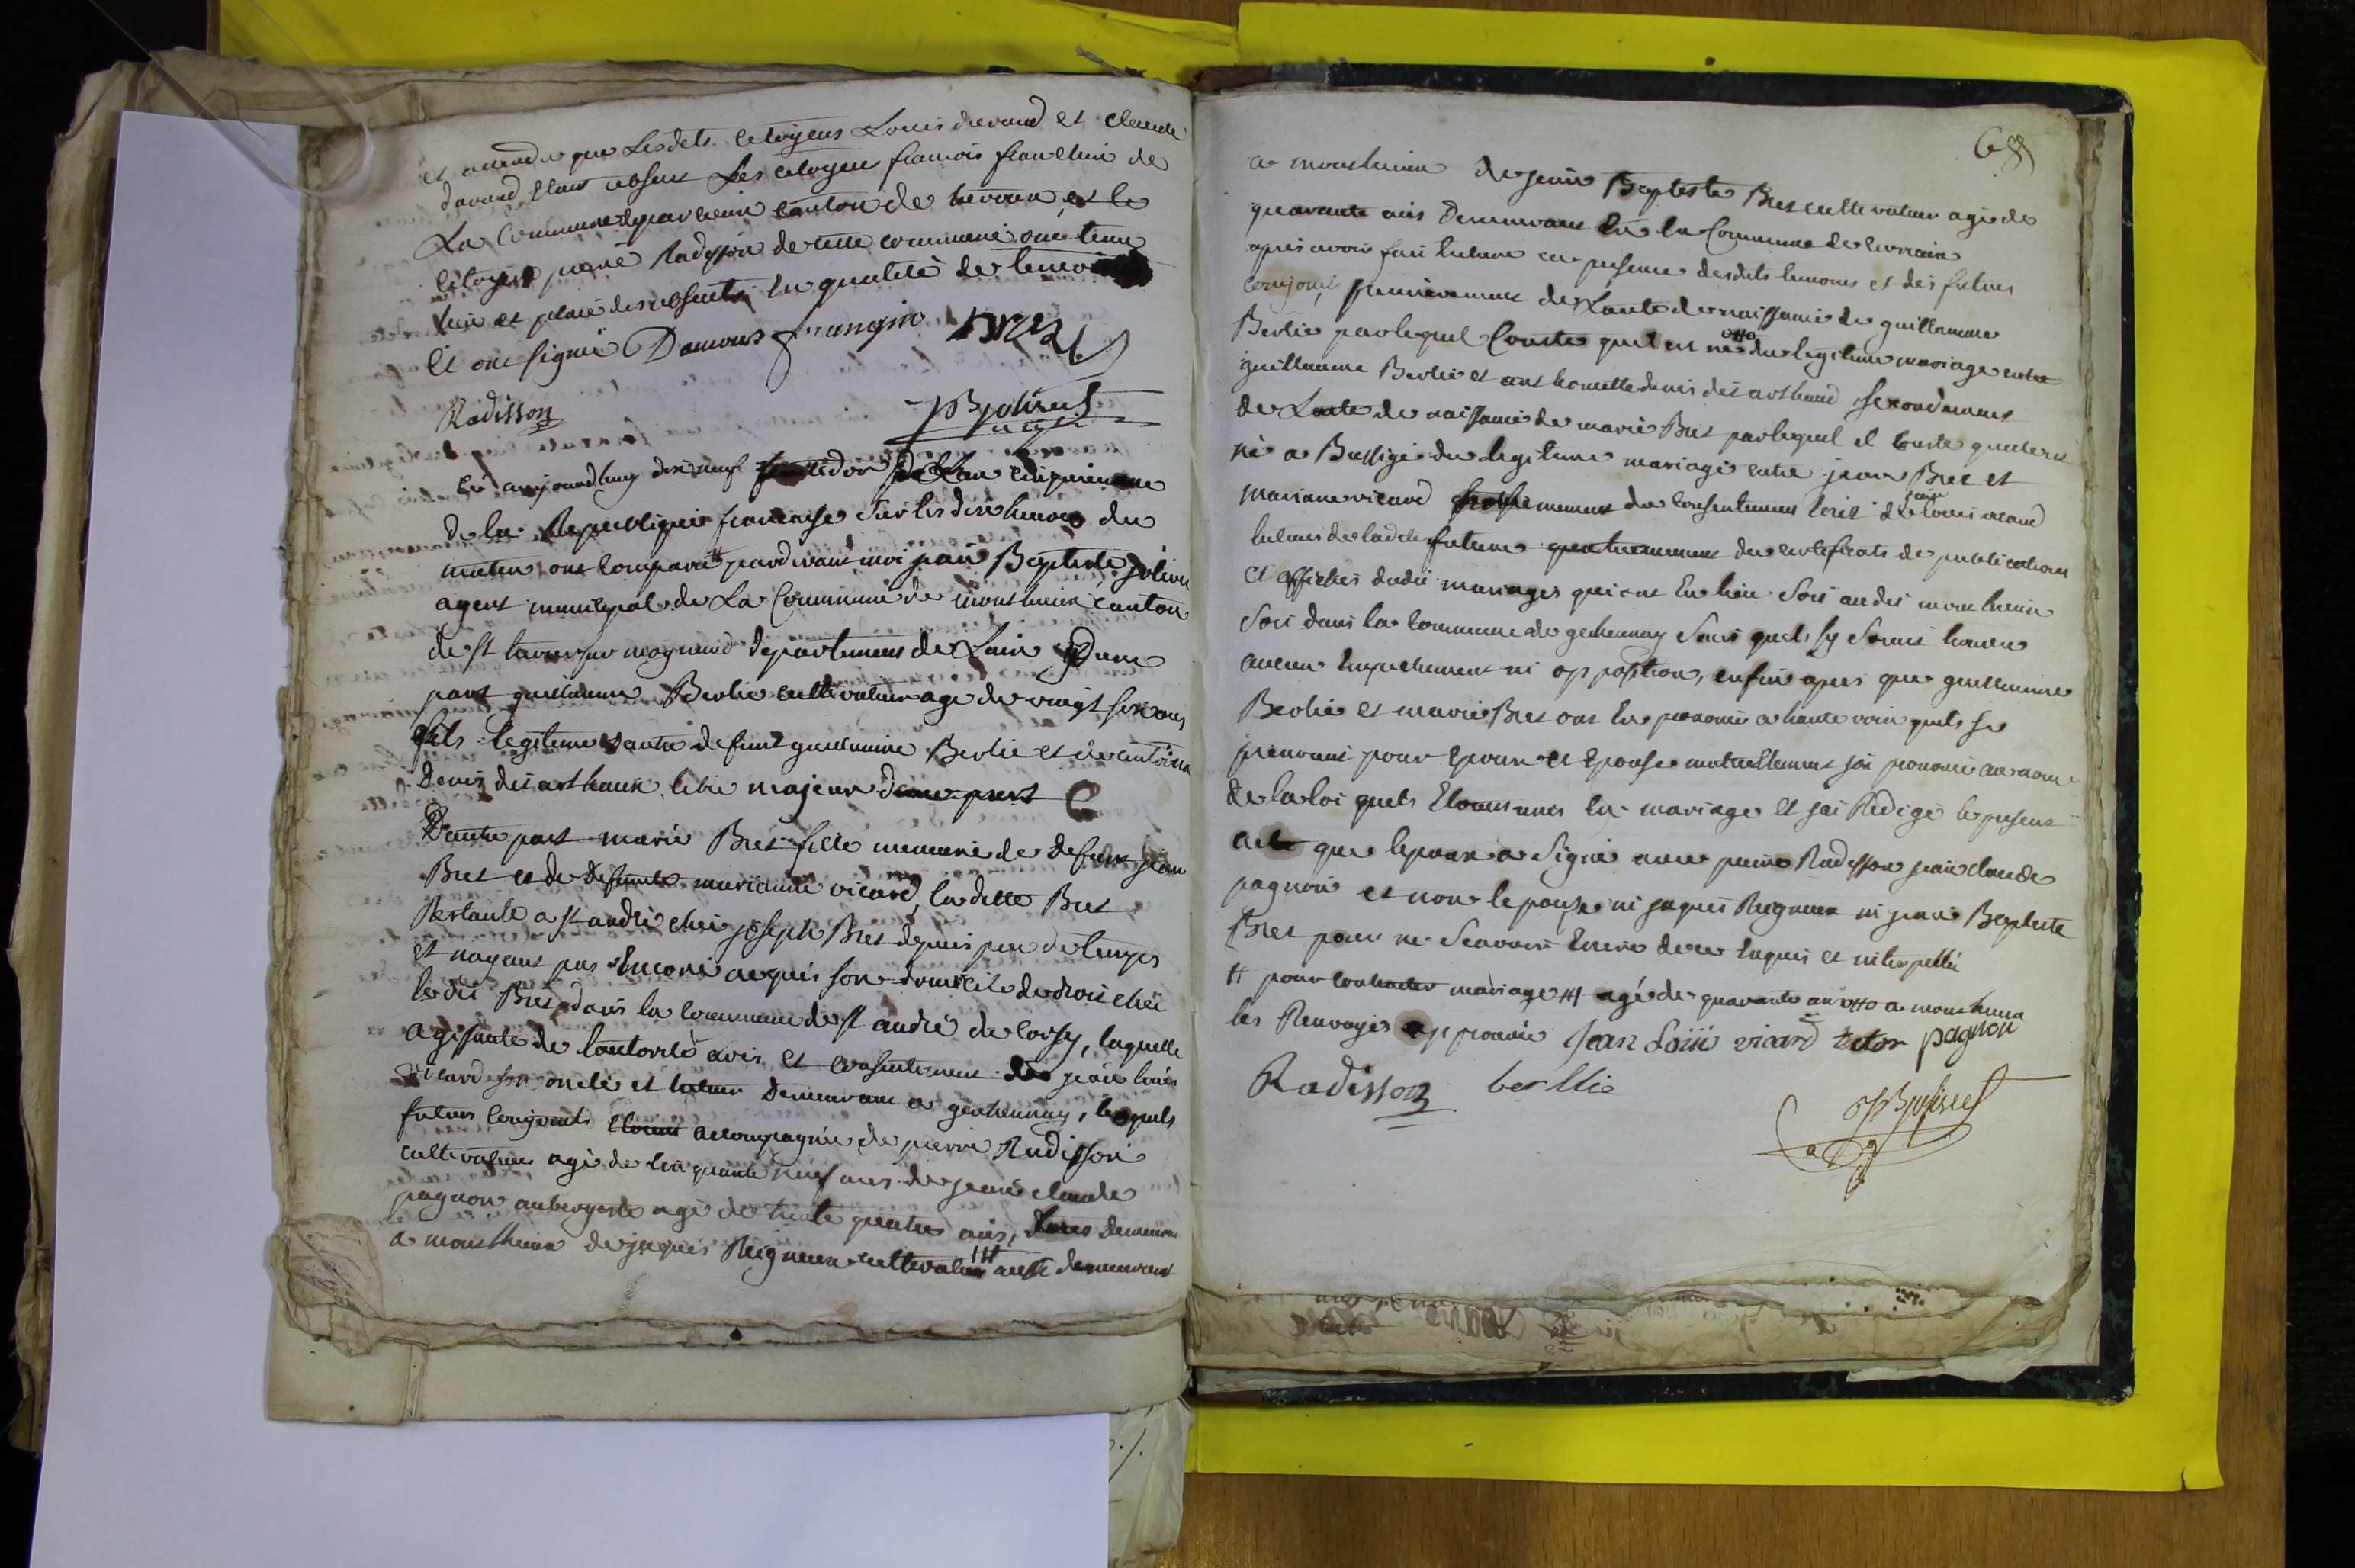 et attendu que Lesdits Citoyens Louis durand et claude
durand Etant absent Les citoyens francois franchin de
La Commune de parcieux canton de trevoux, et le
citoyen pierre Radisson de cette commune ont tenu
lieu et place des absents En qualité de temoins
Et ont signé Damour frangin BRET
Radisson JBJolivet
agt
Et aujourdhuy dix neuf de Lan cinquieme
de la Republique francaise Sur les dix heures du
matin ont comparu # pardevant moi jean Baptiste Jolivet
agent municipal de La Commune de monthieux canton
de st trivier sur mognand departement de Lain Dune
part guillaume Berlie cultivateur age de vingt six ans
fils legitime dautre defunt guillaume Berlie et de antoinette
Denis des arthaux libre majeur dune part
Dautre part marie Bret fille mineure de defunt jean
Bret et de defunte marianne vicard, ladite Bret
Restante a st andré chez joseph Bret depuis peu de temps
et nayant pas Encore acquis son domicile de droit chez
ledit Bret dans la commune de st andré de Corsy, laquelle
agissante de lautorité avis et consentement de jean louis
vicard son oncle et tuteur demeurant a genhennay, lesquels
futurs conjoints Etoient accompagnée de pierre Radisson
cultivateur agé de cinquante neuf ans de jean claude
pagnon aubergiste agé de trente quatre ans, tous demeurant
a monthieux de jaques Reigneux cultivateur ### aussi demeurant
68
a monthieux de jean Baptiste Bret cultivateur agé de
quarante ans demeurant En la Commune de
apres avoir fait lecture en presence desdits temoins et des futurs
conjoints premierement de Lacte de naissance de guillaume
Berlie par lequel Conste quil est né #o du legitime mariage entre
guillaume Berlie et anthoinette denis des arthaud secondement
de Lacte de naissance de marie Bret par lequel il conste quelle est
né a Bussige du legitime mariage entre jean Bret et
mariane vicard troisiemement du consentement Ecrit de jean louis vicard
tuteur de ladite future quatriemement des certificats de publications
et affiches dudit mariages qui ont Eu lieu Soit audit monthieux
Soit dans la commune de genhennay Sans quil sy Soient trouvé
aucun Empechement ni opposition, enfin apres que guillaume
Berlie et marie Bret ont Eu prononcé a haute voix quils se
prenoient pour Epoux et Epouse mutuellement jai prononcé au nom
de la loi quils Etoient unis En mariage et jai Redigé le present
acte que lepoux a Signé avec pierre Radisson jean claude
pagnon et non lepouse ni jaques Reigneux ni jean Baptiste
Bret pour ne Scavoir Ecrire de ce Enquis et interpellé
# pour contracter mariage ### agé de quarante ans #o a monthieux
les Renvoyes approuvé Jean Loüi vicard tutor pagnon
Radisson berllie
JBJolivet
agt